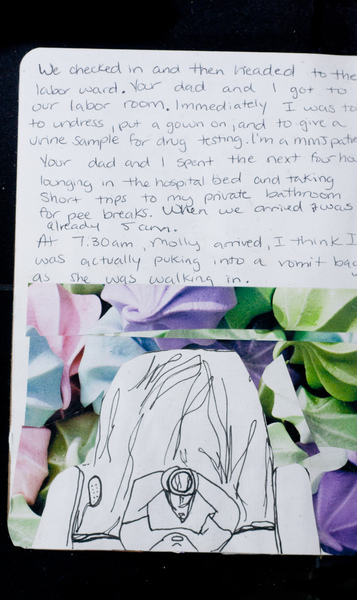 We checked in and then headed to the
labor ward. Your dad and I got to
our labor room. Immediately I was to
to undress, put a gown on, and to give a
urine sample for drug testing. I'm a mmj patie
Your dad and I spent the next four hou
lounging in the hospital bed and taking
short trips to my private bathroom
for pee breaks. When we arrived I was
already 5 cm.
At 7:30am, Molly arrived, I think I
was actually puking into a vomit bag
as she was walking in.